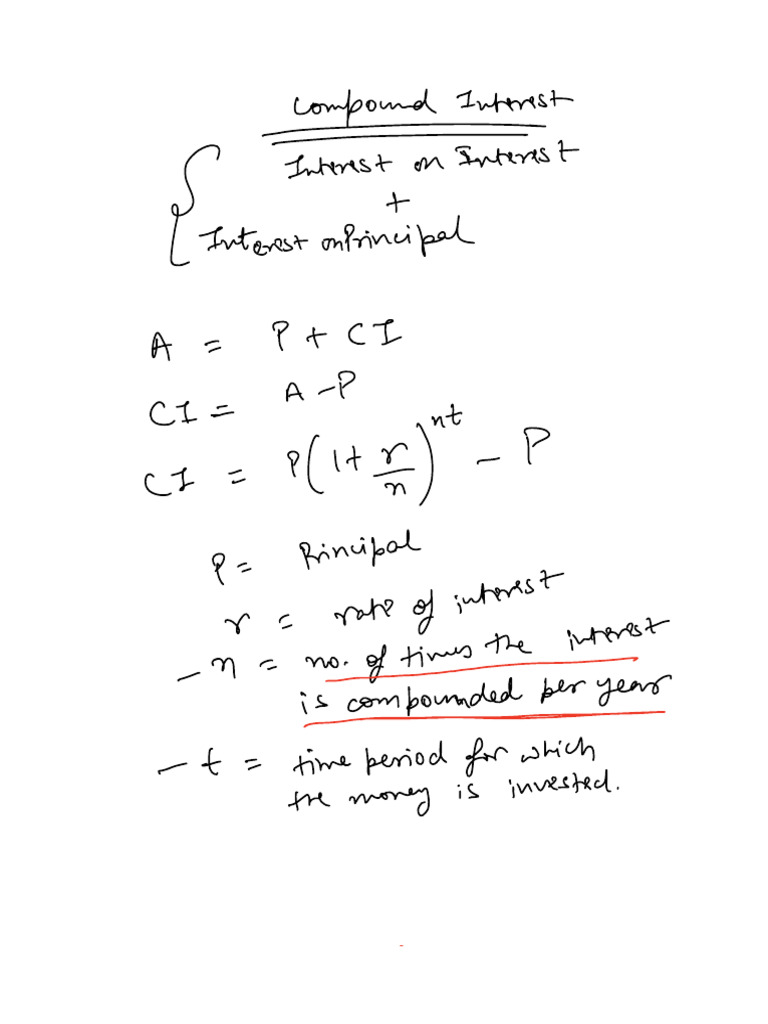 Compound Interest
Interest on Interest
+
Interest on Principal
A = P + CI
CI = A - P
CI = P(1 + r/n)^nt - P
P = Principal
r = rate of interest
- n = no. of times the interest
is compounded per year
- t = time period for which
the money is invested.